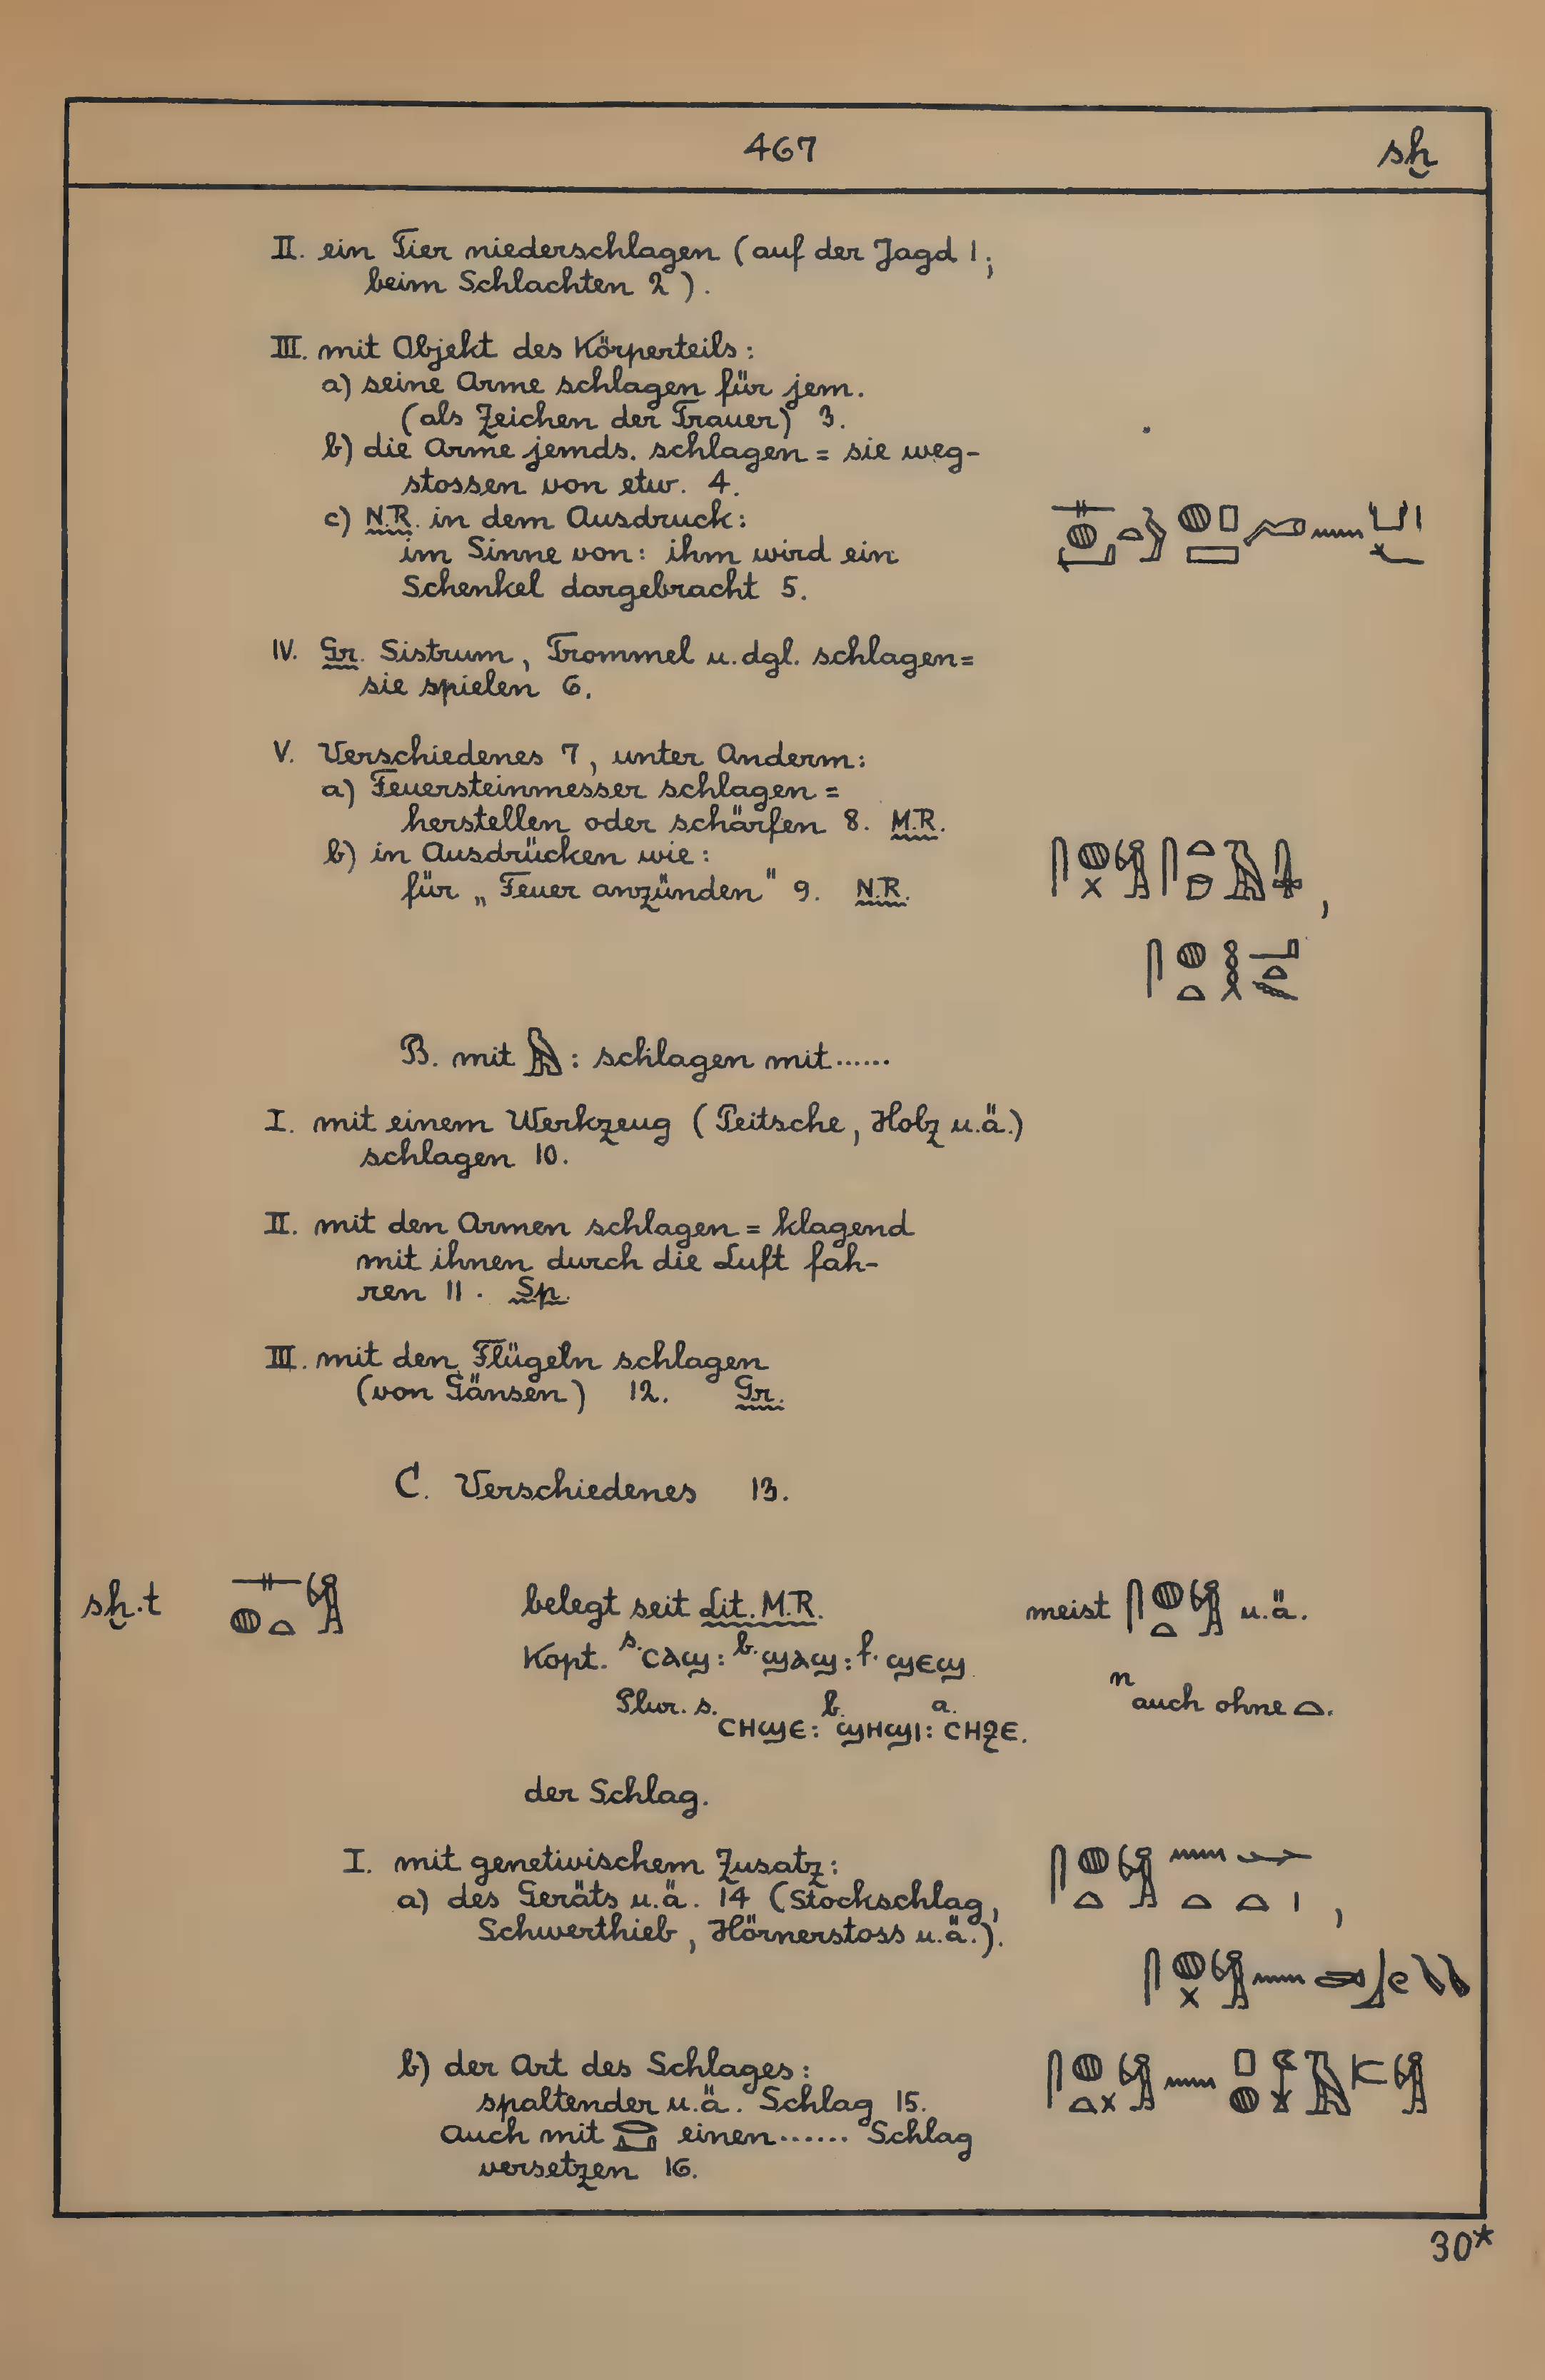 467 sḫ
II. ein Tier niederschlagen (auf der Jagd 1;
beim Schlachten 2).
III. mit Objekt des Körperteils:
a) seine Arme schlagen für jem.
(als Zeichen der Trauer) 3.
b) die Arme jemds. schlagen = sie weg-
stossen von etw. 4.
c) N.R. in dem Ausdruck:
im Sinne von: ihm wird ein
Schenkel dargebracht 5.
IV. Gr. Sistrum, Trommel u. dgl. schlagen =
sie spielen 6.
V. Verschiedenes 7, unter Anderm:
a) Feuersteinmesser schlagen =
herstellen oder schärfen 8. M.R.
b) in Ausdrücken wie:
für „Feuer anzünden" 9. N.R.
B. mit 𓅓: schlagen mit......
I. mit einem Werkzeug (Peitsche, Holz u.ä.)
schlagen 10.
II. mit den Armen schlagen = klagend
mit ihnen durch die Luft fah-
ren 11. Sp.
III. mit den Flügeln schlagen
(von Gänsen) 12. Gr.
C. Verschiedenes 13.
sḫ.t 𓊃𓐍𓏏𓀜 belegt seit Lit. M.R. meist 𓋴𓐍𓏏𓀜 u.ä.
Kopt. s. ⲥⲁϣ: b. ϣⲁϣ: f. ϣⲉϣ
n auch ohne 𓏏.
Plur. s. b. a.
ⲥⲏϣⲉ: ϣⲏϣⲓ: ⲥⲏϩⲉ.
der Schlag.
I. mit genetivischem Zusatz:
a) des Geräts u.ä. 14 (Stockschlag,
Schwerthieb, Hörnerstoss u.ä.).
b) der Art des Schlages:
spaltender u.ä. Schlag 15.
Auch mit 𓂋𓂞 einen...... Schlag
versetzen 16.
30*